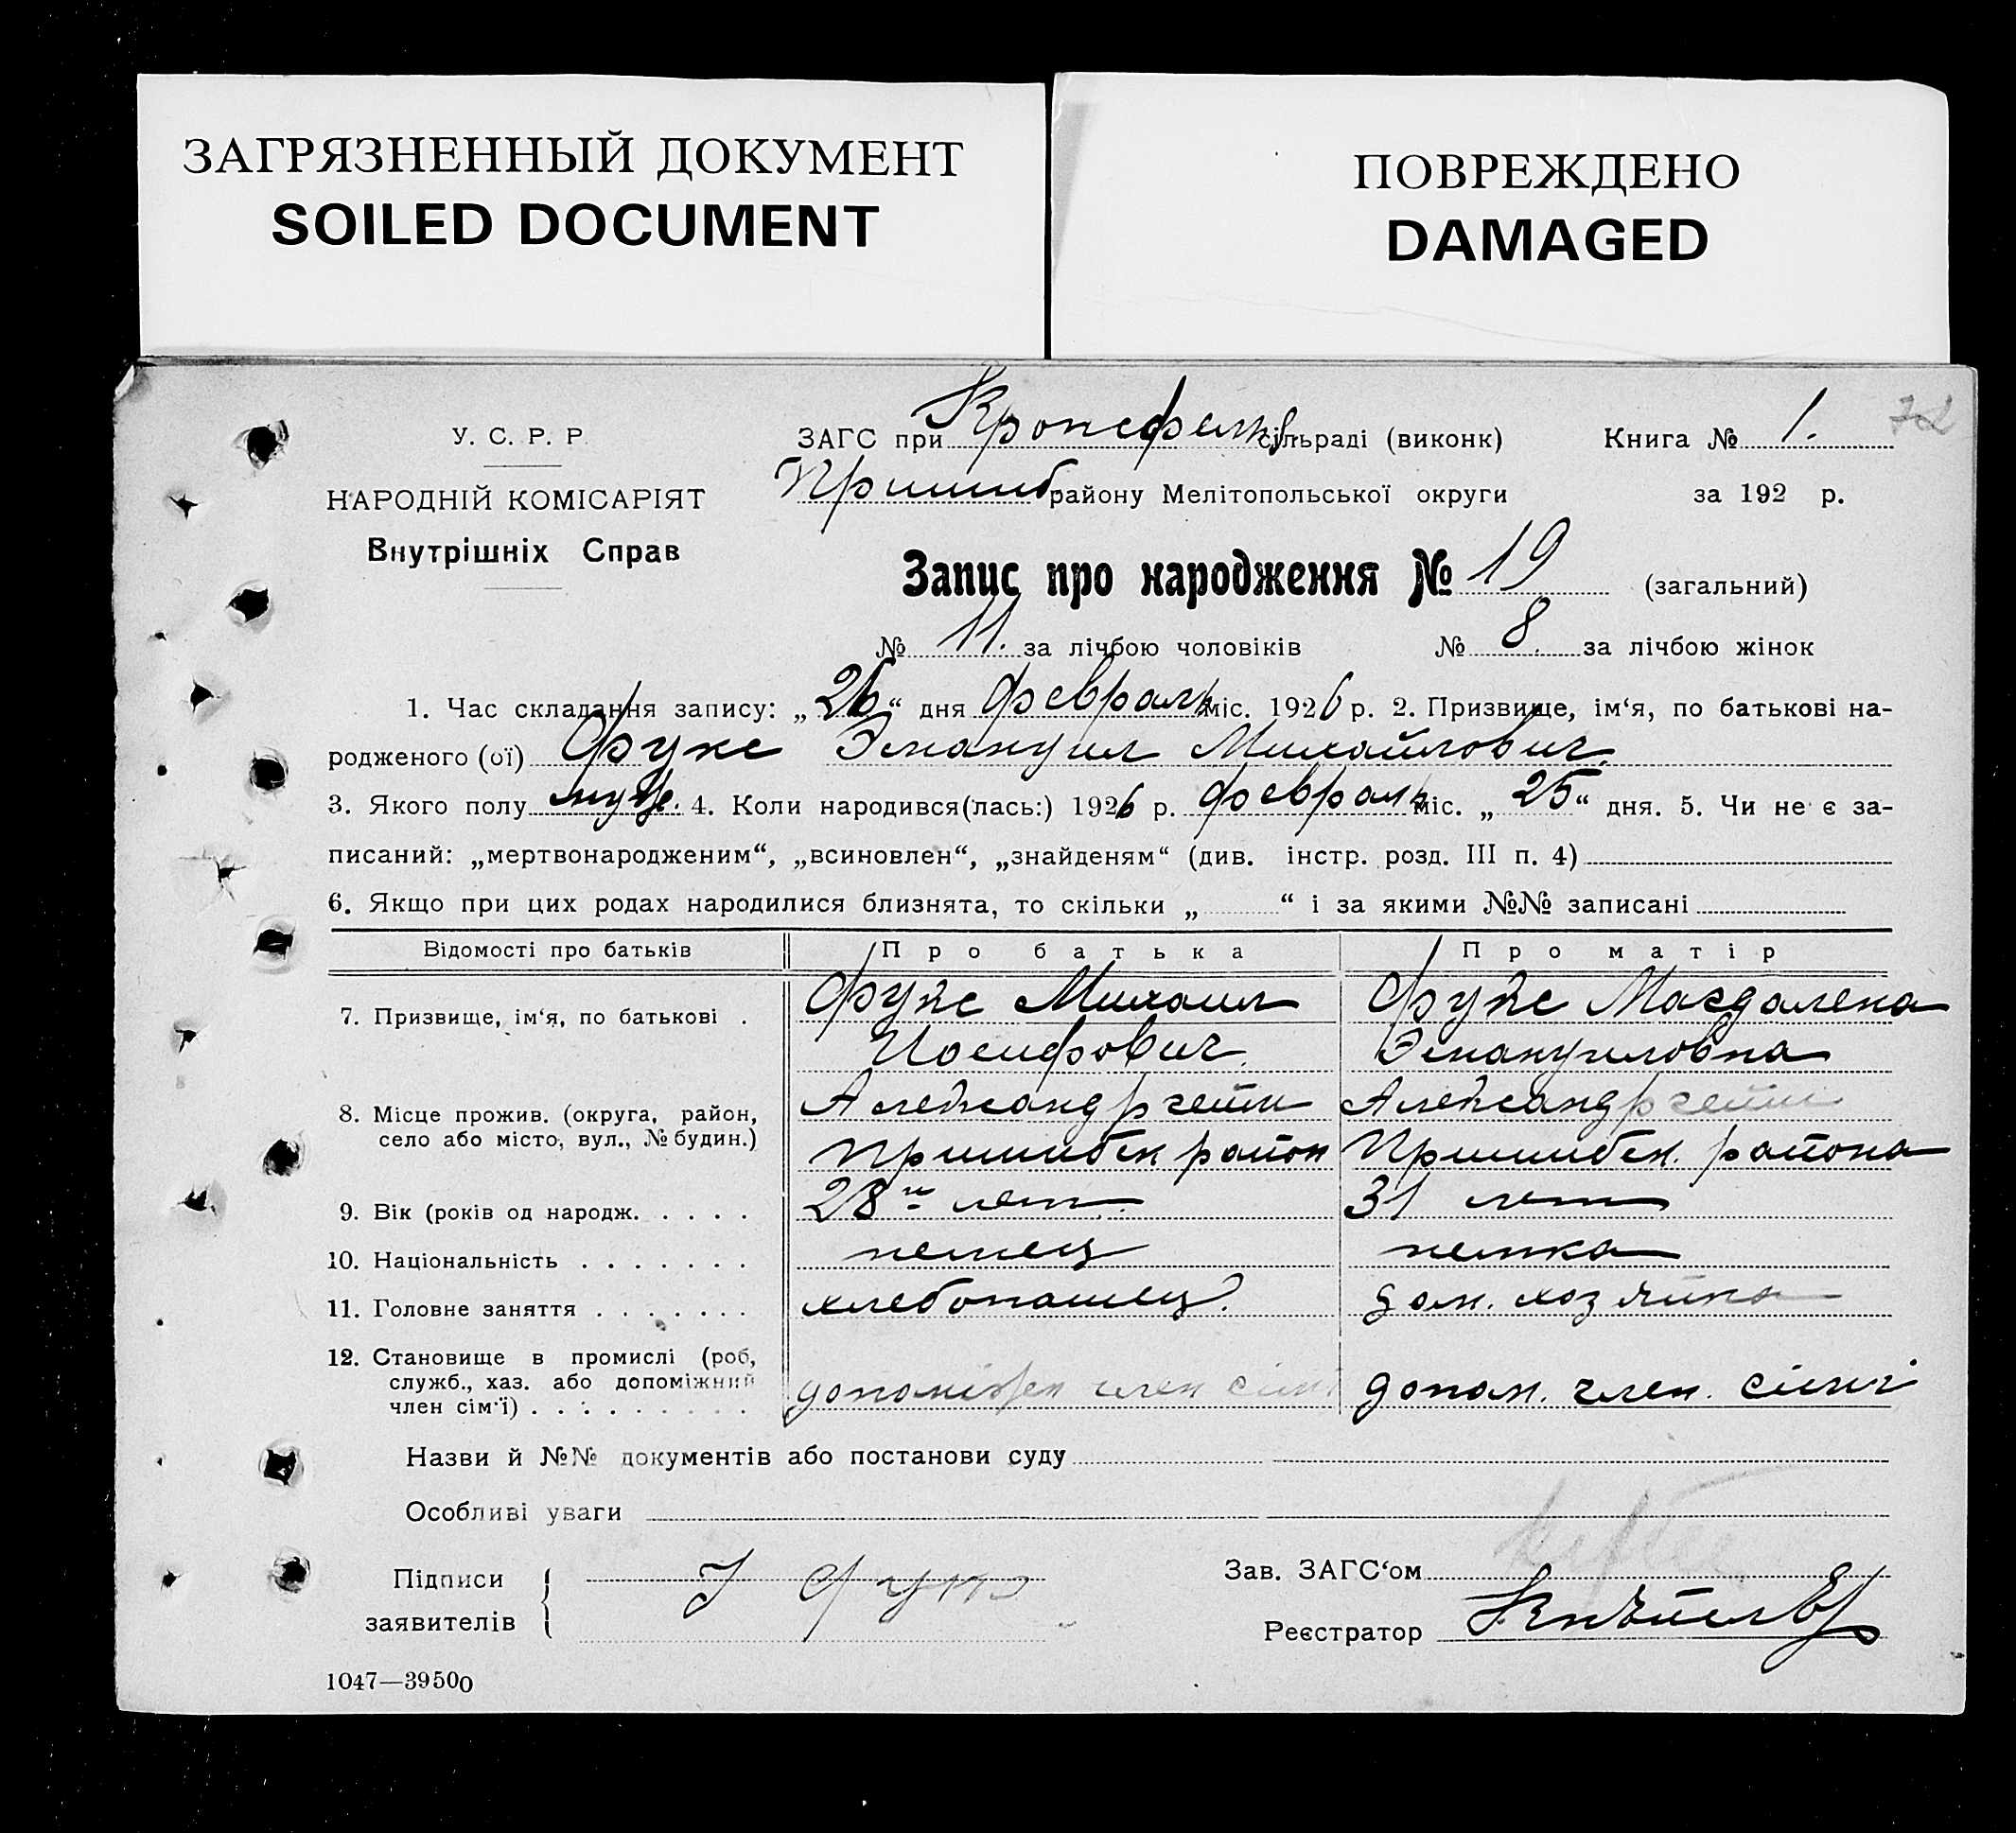 ЗАГРЯЗНЕННЫЙ ДОКУМЕНТ
SOILED DOCUMENT
ПОВРЕЖДЕНО
DAMAGED
У. С. Р. Р.
НАРОДНІЙ КОМІСАРІЯТ
Внутрішніх Справ
ЗАГС при Кронсфельд. сільраді (виконк) Книга № 1.
Пришиб району Мелітопольської округи за 192 р.
Запис про народження № 19 (загальний)
№ 11. за лічбою чоловіків № 8. за лічбою жінок
1. Час складання запису: „26“ дня февраль міс. 1926 р. 2. Призвище, ім‘я, по батькові на-
родженого (ої) Фукс Эмануил Михайлович.
3. Якого полу муж. 4. Коли народився(лась:) 1926 р. февраль міс. „25“ дня. 5. Чи не є за-
писаний: „мертвонародженим“, „всиновлен“, „знайденям“ (див. інстр. розд. III п. 4)
6. Якщо при цих родах народилися близнята, то скільки „ “ і за якими №№ записані
Відомості про батьків Про батька Про матір
7. Призвище, ім‘я, по батькові . Фукс Михаил Фукс Магдалена
Иосифович. Эмануиловна
8. Місце прожив. (округа, район, Александргейм Александргейм
село або місто, вул., № будин.) Пришибск район Пришибск. района
9. Вік (років од народж. . . . . 28 м лет. 31 лет
10. Національність . . . . . . . немец немка
11. Головне заняття . . . . . . . хлебопашец. дом. хозяйка
12. Становище в промислі (роб,
служб., хаз. або допоміжний допоміжен член сімї допом. член. сімї
член сім‘ї) . . . . . . . . .
Назви й №№ документів або постанови суду
Особливі уваги
Підписи
заявителів
Зав. ЗАГС‘ом
Реєстратор
1047—39500